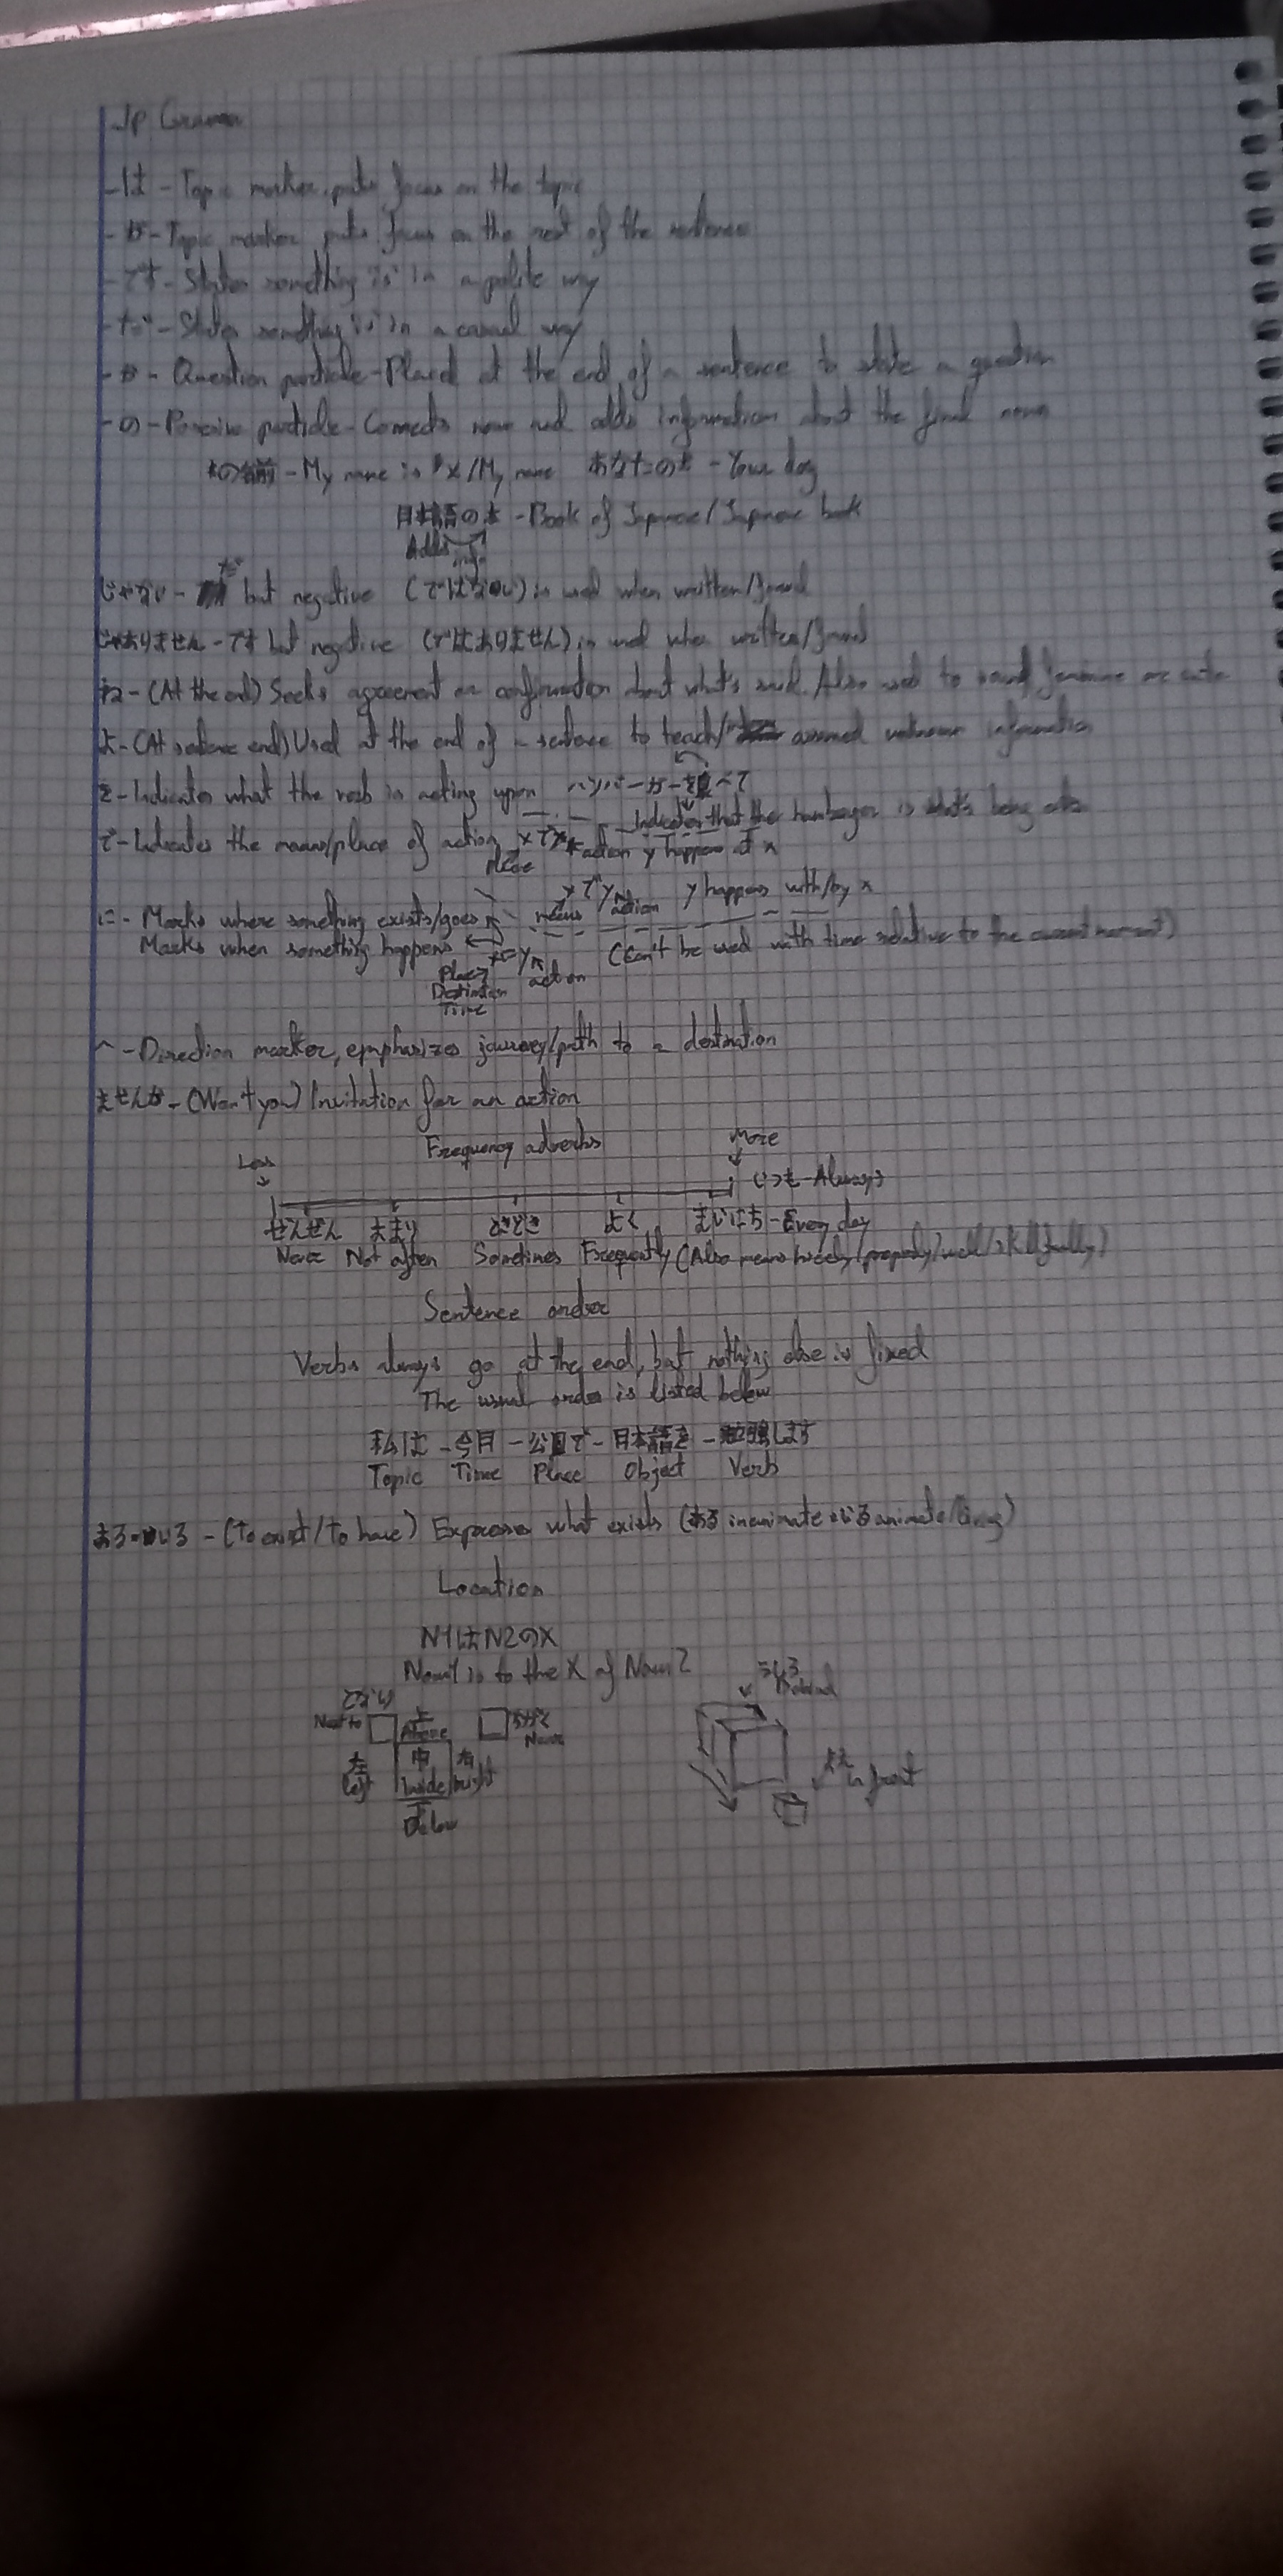 Jp Grammar
-は - Topic marker, puts focus on the topic
-が - Topic marker puts focus on the rest of the sentence
-です - States something 'is' in a polite way
-だ - States something 'is' in a casual way
-か - Question particle - Placed at the end of a sentence to state a question
-の - particle - Connects noun and adds information about the final noun
の名前 - My name is x/My name あなたの犬 - Your dog
日本語の本 - Book of Japanese/Japanese book
Adds info
じゃない - だ but negative (ではない) is used when written/formal
じゃありません - です but negative (ではありません) is used when written/formal
ね - (At the end) Seeks agreement or confirmation about what's said. Also used to sound feminine or cute
よ - (At sentence end) Used at the end of a sentence to teach/ assumed unknown information
を - Indicates what the verb is acting upon ハンバーガーを食べて
Indicates that the hamburger is what's being eaten
で - Indicates the means/place of action xでy action y happens at x
place
xでy y happens with/by x
means action
に - Marks where something exists/goes
Marks when something happens (Can't be used with time relative to the current moment)
xにy
Place action
Destination
Time
へ - Direction marker, emphasizes journey/path to a destination
ませんか - (Won't you) Invitation for an action
Frequency adverbs
Less More
いつも - Always
ぜんぜん あまり ときどき よく まいにち - Every day
Never Not often Sometimes Frequently (Also means nicely/properly/well/skillfully)
Sentence order
Verbs always go at the end, but nothing else is fixed
The usual order is listed below
私は - 今月 - 公園で - 日本語を - 勉強します
Topic Time Place Object Verb
ある・いる - (to exist/to have) Expresses what exists (ある inanimate いる animate/living)
Location
N1はN2のX
Noun1 is to the X of Noun2
となり
Next to
上
Above
ちかく
Near
左
left
中
Inside
右
right
下
Below
うしろ
Behind
まえ
in front